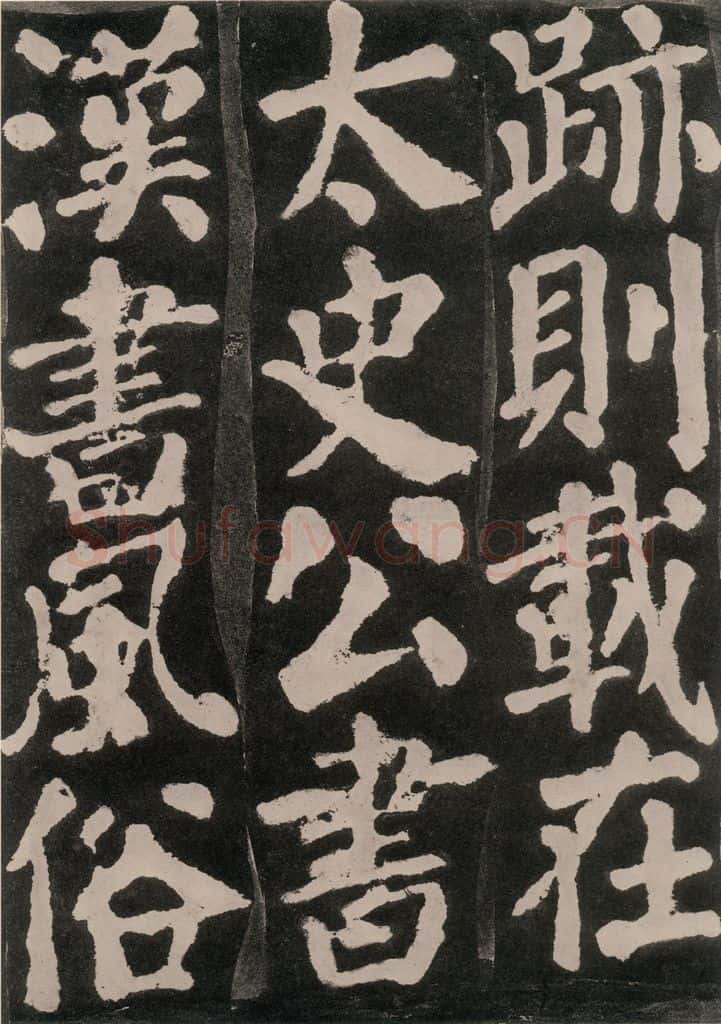 跡則載在
太史公書
漢書風俗
Shufawang.CN